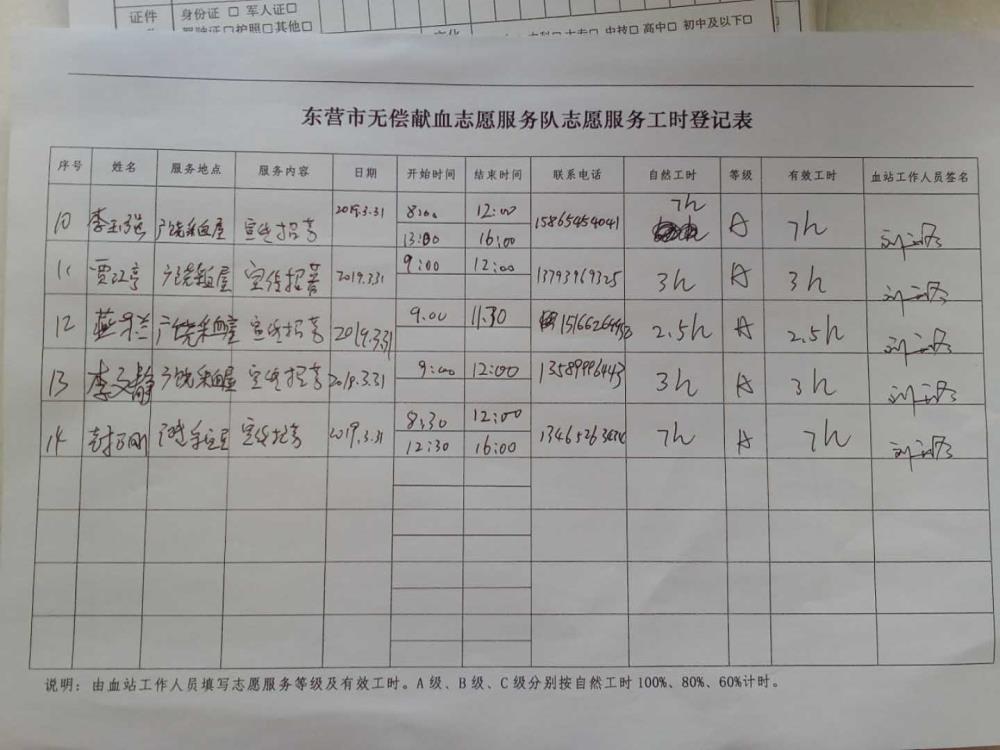 证件 身份证 □ 军人证□
驾驶证□护照□其他□ 文化 本科□大专□ 中技□高中□ 初中及以下□
东营市无偿献血志愿服务队志愿服务工时登记表
序号 姓名 服务地点 服务内容 日期 开始时间 结束时间 联系电话 自然工时 等级 有效工时 血站工作人员签名
10 李玉强 广饶采血屋 宣传招募 2019.3.31 8:00 12:00 15865454041 7h A 7h
13:00 16:00
11 贾江亭 广饶采血屋 宣传招募 2019.3.31 9:00 12:00 13793969325 3h A 3h
12 广饶采血屋 宣传招募 2019.3.31 9.00 11.30 2.5h A 2.5h
13 李文静 广饶采血屋 宣传招募 2019.3.31 9:00 12:00 13589996443 3h A 3h
14 宣传招募 2019.3.31 8:30 12:00 7h A 7h
12:30 16:00
说明：由血站工作人员填写志愿服务等级及有效工时。A 级、B 级、C 级分别按自然工时 100%、80%、60%计时。